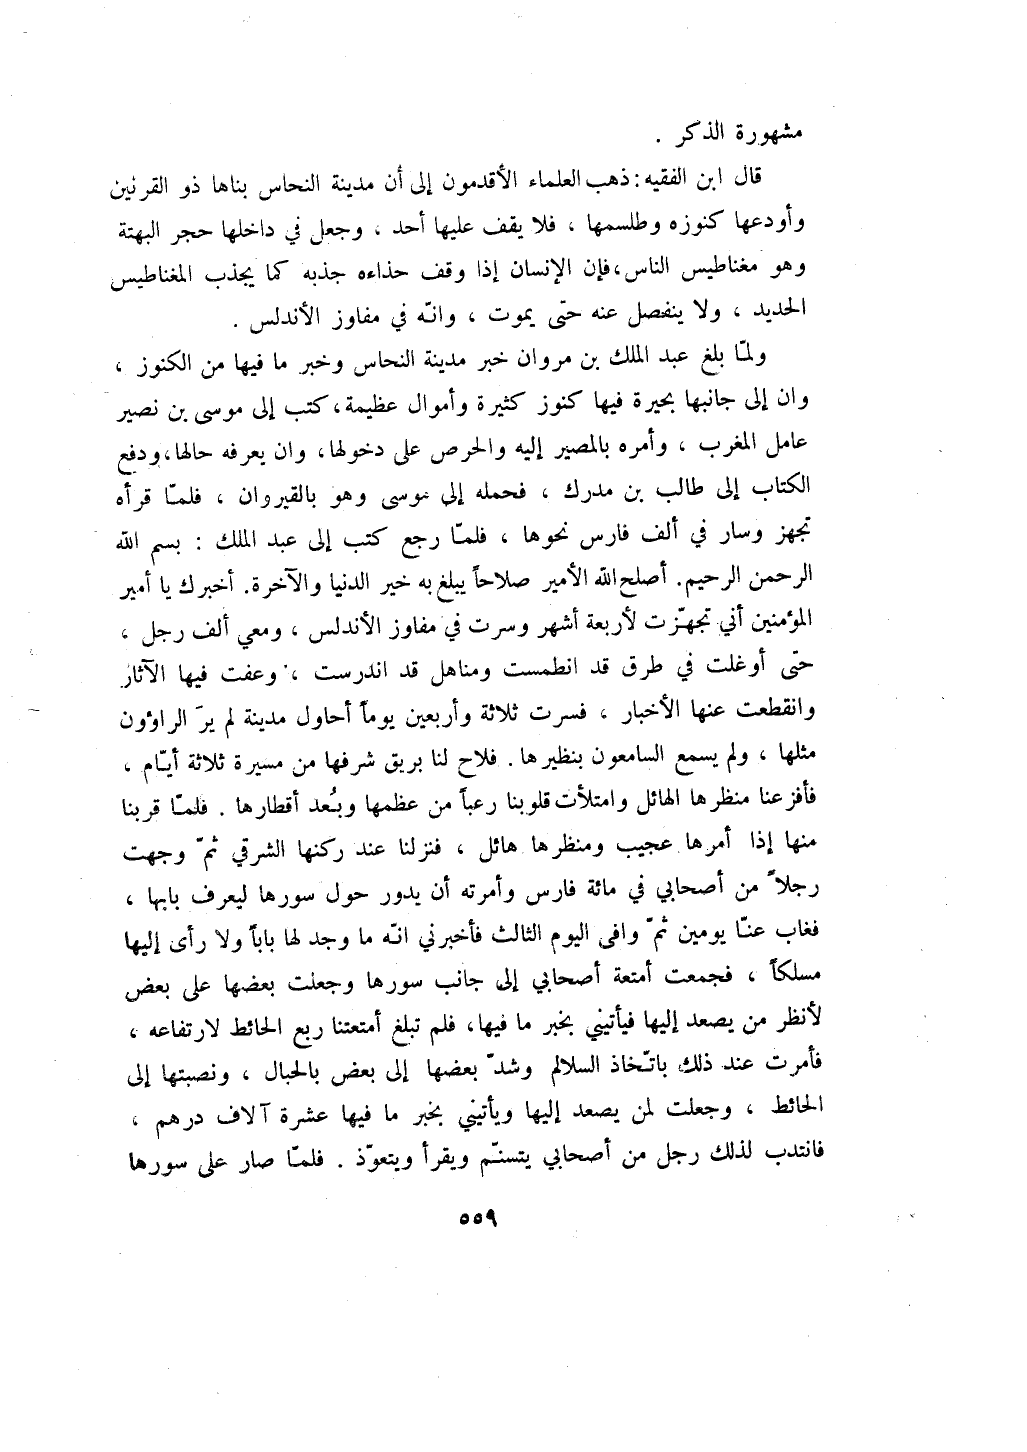 مشهورة الذكر .
قال ابن الفقيه : ذهب العلماء الأقدمون إلى أن مدينة النحاس بناها ذو القرنين
وأودعها كنوزه وطلسمها ، فلا يقف عليها أحد ، وجعل في داخلها حجر البهتة
وهو مغناطيس الناس ، فإن الإنسان إذا وقف حذاءه جذبه كما يجذب المغناطيس
الحديد ، ولا ينفصل عنه حتّى يموت ، وانّه في مفاوز الأندلس .
ولمّا بلغ عبد الملك بن مروان خبر مدينة النحاس وخبر ما فيها من الكنوز ،
وان إلى جانبها بحيرة فيها كنوز كثيرة وأموال عظيمة ، كتب إلى موسى بن نصير
عامل المغرب ، وأمره بالمصير إليه والحرص على دخولها ، وان يعرفه حالها ، ودفع
الكتاب إلى طالب بن مدرك ، فحمله إلى موسى وهو بالقيروان ، فلمّا قرأه
تجهز وسار في ألف فارس نحوها ، فلمّا رجع كتب إلى عبد الملك : بسم الله
الرحمن الرحيم . أصلح الله الأمير صلاحاً يبلغ به خير الدنيا والآخرة . أخبرك يا أمير
المؤمنين أني تجهّزت لأربعة أشهر وسرت في مفاوز الأندلس ، ومعي ألف رجل ،
حتّى أوغلت في طرق قد انطمست ومناهل قد اندرست ، وعفت فيها الآثار
وانقطعت عنها الأخبار ، فسرت ثلاثة وأربعين يوماً أحاول مدينة لم يرَ الراؤون
مثلها ، ولم يسمع السامعون بنظيرها . فلاح لنا بريق شرفها من مسيرة ثلاثة أيّام ،
فأفزعنا منظرها الهائل وامتلأت قلوبنا رعباً من عظمها وبُعد أقطارها . فلمّا قربنا
منها إذا أمرها عجيب ومنظرها هائل ، فنزلنا عند ركنها الشرقي ثمّ وجهت
رجلاً من أصحابي في مائة فارس وأمرته أن يدور حول سورها ليعرف بابها ،
فغاب عنّا يومين ثمّ وافى اليوم الثالث فأخبرني انّه ما وجد لها باباً ولا رأى إليها
مسلكاً ، فجمعت أمتعة أصحابي إلى جانب سورها وجعلت بعضها على بعض
لأنظر من يصعد إليها فيأتيني بخبر ما فيها ، فلم تبلغ أمتعتنا ربع الحائط لارتفاعه ،
فأمرت عند ذلك باتّخاذ السلالم وشدّ بعضها إلى بعض بالحبال ، ونصبتها إلى
الحائط ، وجعلت لمن يصعد إليها ويأتيني بخبر ما فيها عشرة آلاف درهم ،
فانتدب لذلك رجل من أصحابي يتسنّم ويقرأ ويتعوّذ . فلمّا صار على سورها
٥٥٩